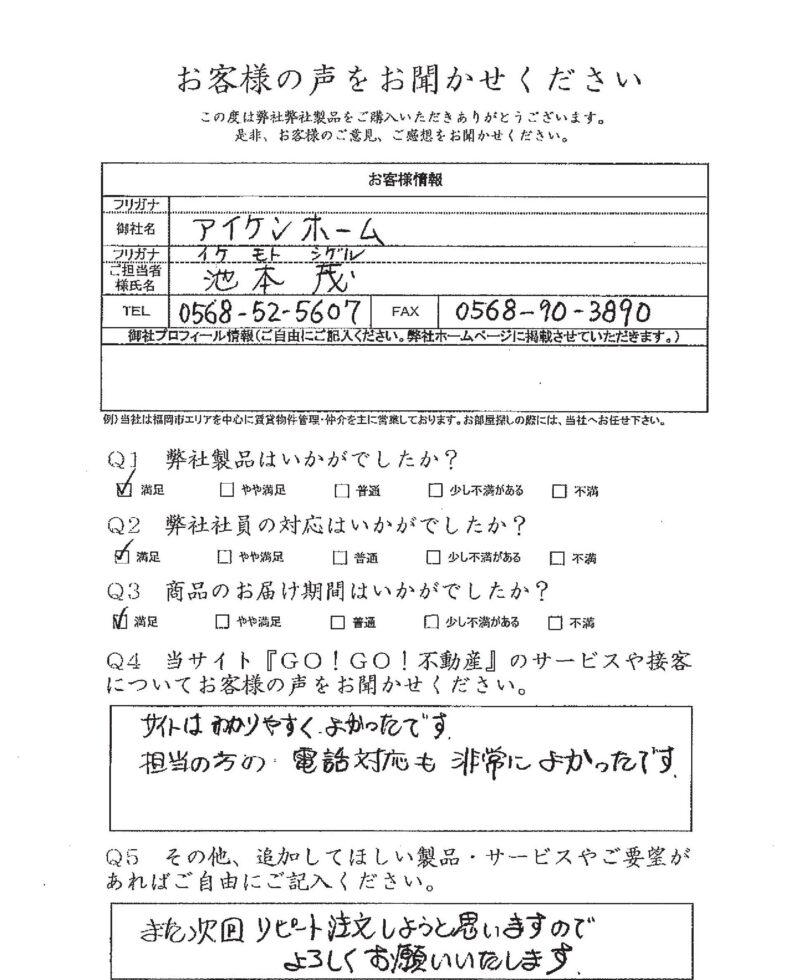 お客様の声をお聞かせください
この度は弊社弊社製品をご購入いただきありがとうございます。
是非、お客様のご意見、ご感想をお聞かせください。
お客様情報
フリガナ
御社名 アイケンホーム
フリガナ イケ モト シゲル
ご担当者様氏名 池本 茂
TEL 0568-52-5607 FAX 0568-90-3890
御社プロフィール情報(ご自由にご記入ください。弊社ホームページに掲載させていただきます。)
例)当社は福岡市エリアを中心に賃貸物件管理・仲介を主に営業しております。お部屋探しの際には、当社へお任せ下さい。
Q1 弊社製品はいかがでしたか?
☑ 満足 □ やや満足 □ 普通 □ 少し不満がある □ 不満
Q2 弊社社員の対応はいかがでしたか?
☑ 満足 □ やや満足 □ 普通 □ 少し不満がある □ 不満
Q3 商品のお届け期間はいかがでしたか?
☑ 満足 □ やや満足 □ 普通 □ 少し不満がある □ 不満
Q4 当サイト『GO!GO!不動産』のサービスや接客
についてお客様の声をお聞かせください。
サイトはわかりやすく、よかったです。
担当の方の電話対応も非常によかったです。
Q5 その他、追加してほしい製品・サービスやご要望が
あればご自由にご記入ください。
また次回リピート注文しようと思いますので
よろしくお願いいたします。